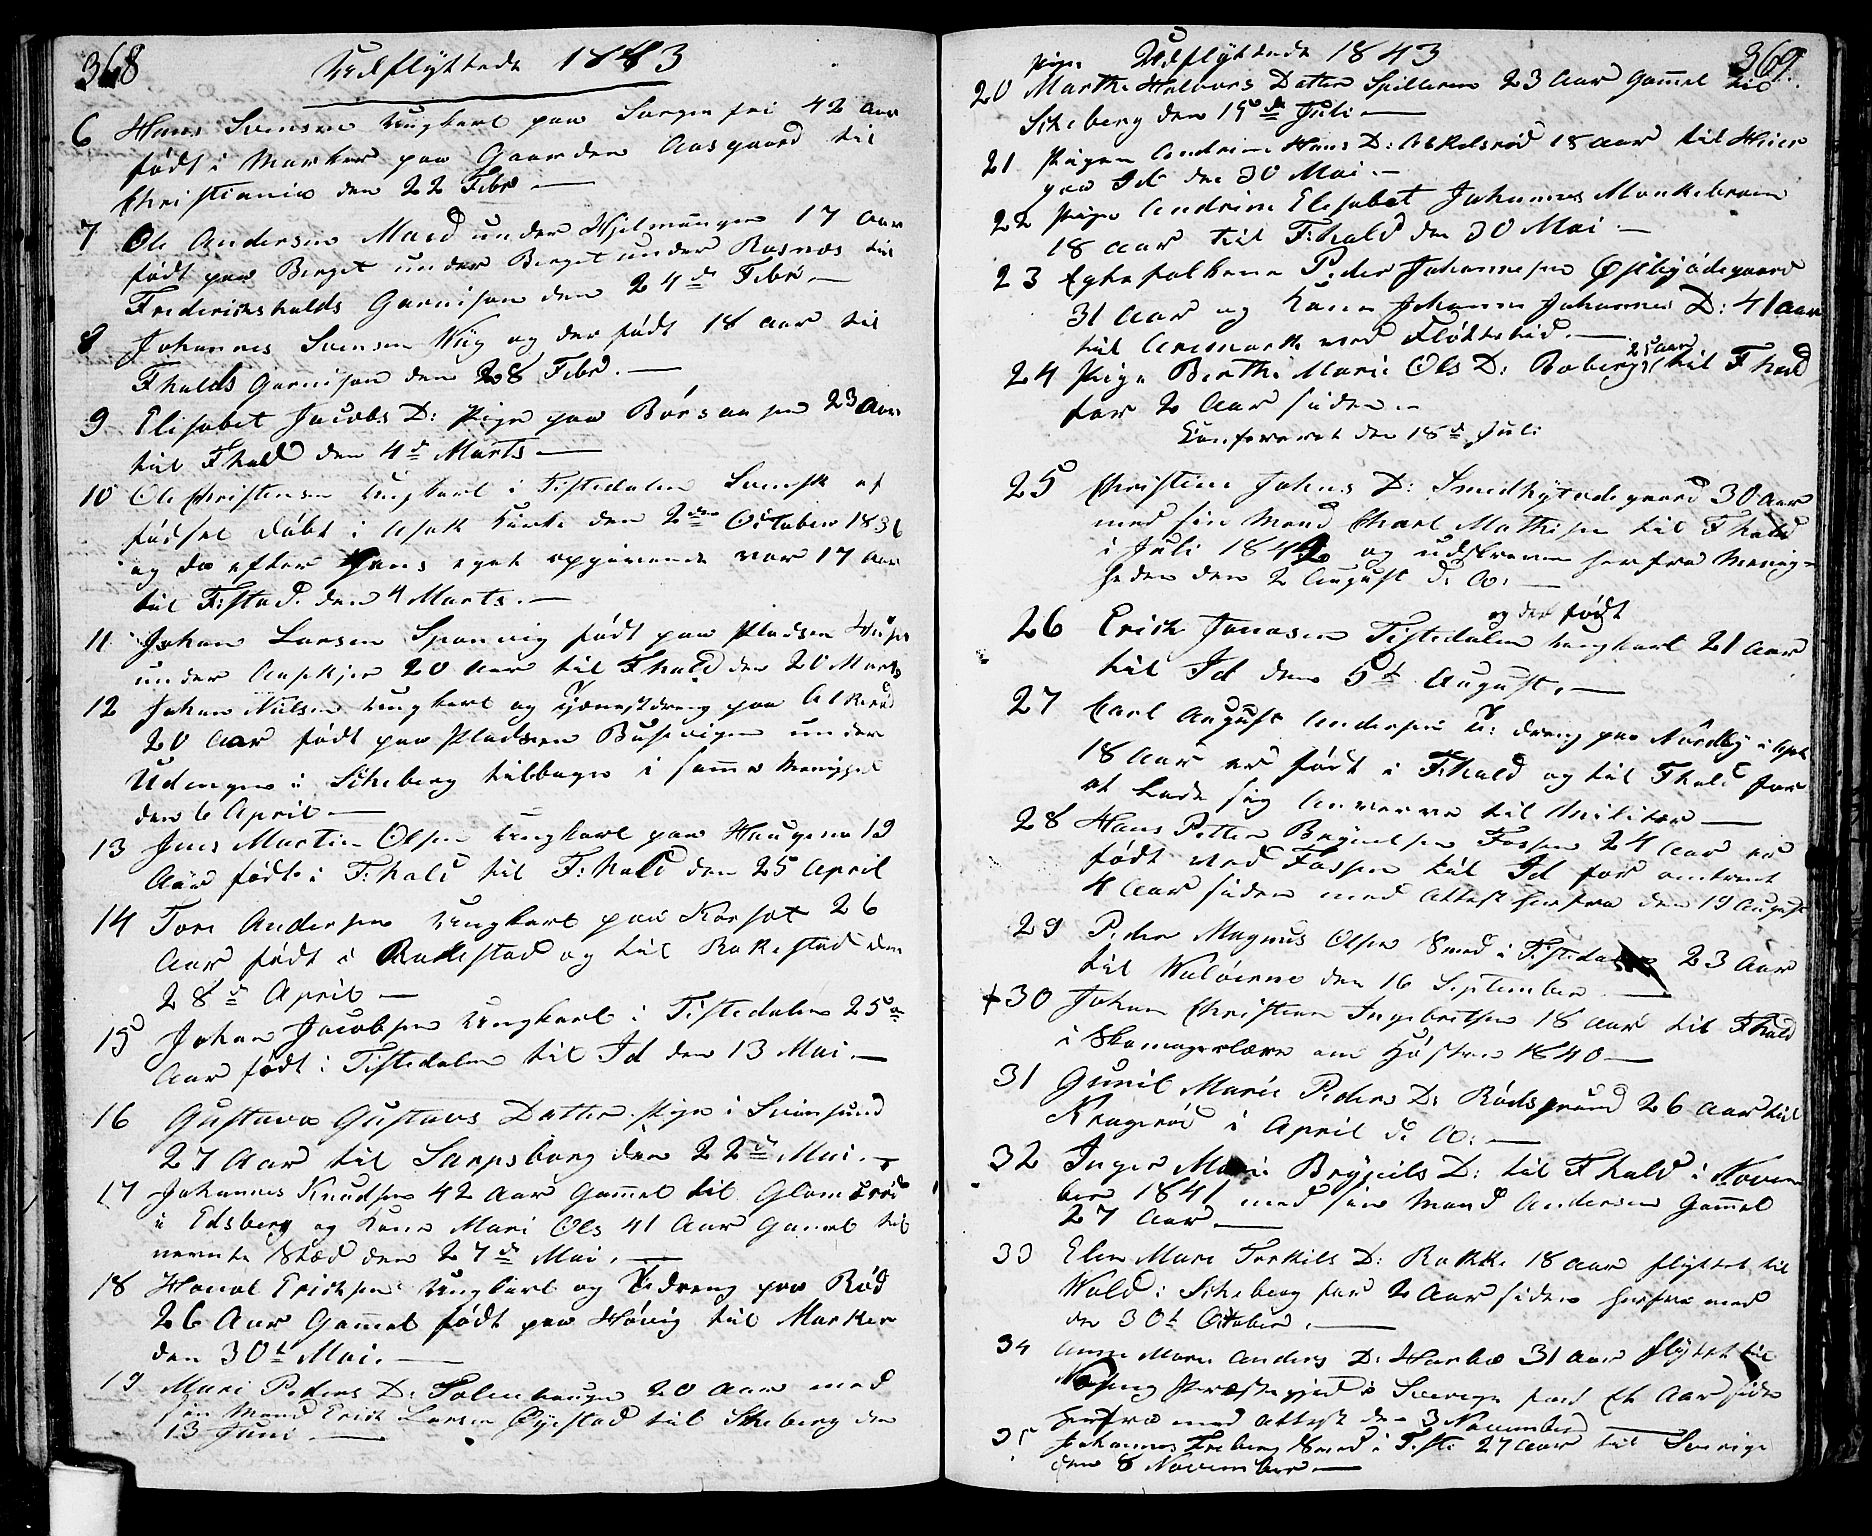 368
Udflyttede 1843
6 Hans Svensen Ungkarl paa Sorgenfri 42 Aar
født i Marker paa Gaarden Aasgaard til
Christiania den 22 Febr
7 Ole Andersen Maed under Hjelmungen 17 Aar
født paa Berget under Berget under Rasnæs til
Fredrikshalds Garnison den 24de Febr
8 Johannes Svensen Wiig og der født 18 Aar til
Fhalds Garnison den 28 Febr.
9 Elisabet Jacobs D: Pige paa Börsaasen 23 Aar
til Fhald den 4de Marts
10 Ole Christensen Ungkarl i Tistedalen Svensk af
fødsel døbt i Asak Kirke den 2den October 1836
og da efter Hans eget opgivende var 17 Aar
til F:stad. den 4 Marts.
11 Johan Larsen Sponvig født paa Pladsen
under 20 Aar til Fhald den 20 Marts
12 Johan Nielsen Ungkarl og Tjenestdreng paa
20 Aar født paa Pladsen under
Udengen i Skeberg tilbage i samme Menighed
den 6 April
13 Jens Martin Olsen Ungkarl paa Haugene 19
Aar født i F:hald til F:hald den 25 April
14 Tore Andersen Ungkarl paa Korset 26
Aar født i Rakkestad og til Rakkestad den
28de April
15 Johan Jacobsen Ungkarl i Tistedalen 25
Aar født i Tistedalen til Id den 13 Mai
16 Gustava Gustavs Datter Pige i Svinsund
27 Aar til Sarpsborg den 22de Mai.
17 Johannes Knudsen 42 Aar Gammel til
i Edsberg og Kone Mari Ols 41 Aar Gammel til
nevnte Stæd den 27de Mai.
18 Erichsen Ungkarl og T:dreng paa Rød
26 Aar Gammel født paa Høvig til Marker
den 30t Mai.
19 Mari Peders D: 20 Aar med
sin Mand Erich Larsen Øyestad til Skeberg den
13 Juni.
369.
Udflyttede 1843
Pige
20 Marthe Halvors Datter Spilleren 23 Aar Gammel til
Skeberg den 15de Juli
21 Pigen Andrine Hans D: 18 Aar til
paa Id den 30 Mai.
22 Pige Andrine Elisabet Johannes Munkebraaen
18 Aar til F:hald den 30 Mai
23 Egtefolkene Peder Johannesen Østbyødegaard
31 Aar og Kone Johanne Johannes D: 41 Aar
til Aremark ved Fløttetid.
24 Pige Berthe Marie Ols D: Roberg 25 Aar til Fhald
for 2 Aar siden
Konfereret den 18de Juli
25 Christine Johns D: Smedhytødegaard 30 Aar
med sin Mand Charl Mathisen til Fhald
i Juli 1842 og udskreven herfra Menig-
heden den 2 August d: A:
og der født
26 Erich Jonasen Tistedalen Ungkarl 21 Aar
til Id den 5t August.
27 Carl August Andersen T: dreng paa Nordby i
18 Aar er født i F:hald og til Fhald for
at lade sig Anverve til Militær
28 Hans Petter Brynelsen Fossen 24 Aar er
født ved Fossen til Id for omtrent
4 Aar siden med Attest herfra den 19 August
29 Peder Magnus Olsen Smed i Tistedalen 23 Aar
til Waløerne den 16 September
+30 Johan Christian Ingebretsen 18 Aar til Fhald
i Skomagerlære om Høsten 1840
31 Gunil Marie Peders D: Rødsgrund 26 Aar til
Kragerøe i April d: A:
32 Inger Marie Brynils D: til Fhald i Novem
ber 1841 med sin Mand Andersen Gammel
27 Aar
33 Elen Mari Torkils D: Rakke 18 Aar flyttet til
Wold i Skeberg for 2 Aar siden herfra med
den 30t October.
34 Anne Marie Anders D: 31 Aar flyttet til
Præstegjeld i Sverige for Et Aar siden
herfra med Attest den 3 November
35 Johannes Smed i Tiste 27 Aar til Sverige
den 8 November